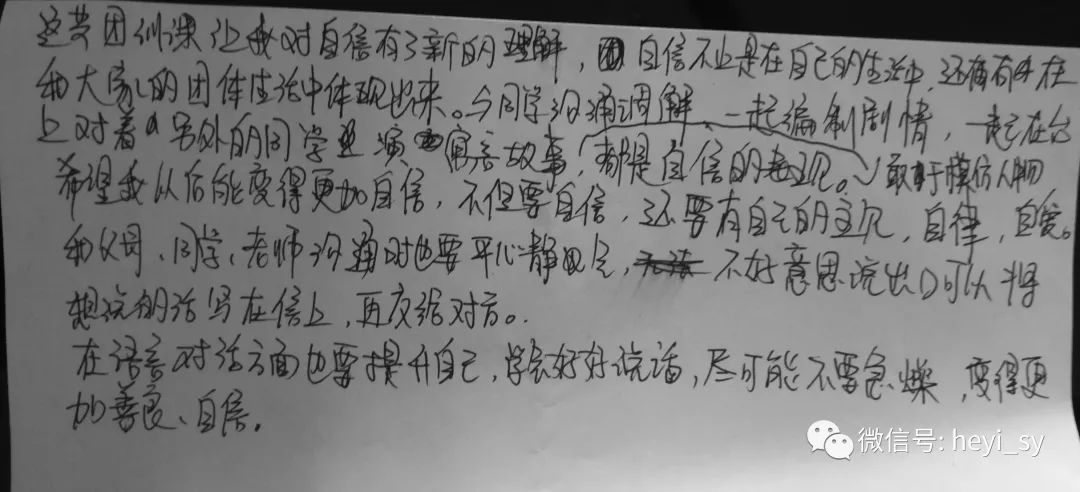 这节团训课让我对自信有了新的理解,自信不止是在自己的生活中,还有在
和大家的团体生活中体现出来。与同学沟通调解、一起编制剧情,一起在台
上对着另外的同学演寓言故事,都是自信的表现。敢于模仿人物
希望我以后能变得更加自信,不但要自信,还要有自己的主见,自律,自爱。
和父母、同学、老师沟通时也要平心静气,不好意思说出口可以将
想说的话写在信上,再交给对方。
在语言对话方面也要提升自己,学会好好说话,尽可能不要急燥,变得更
加善良、自信。
微信号: heyi_sy